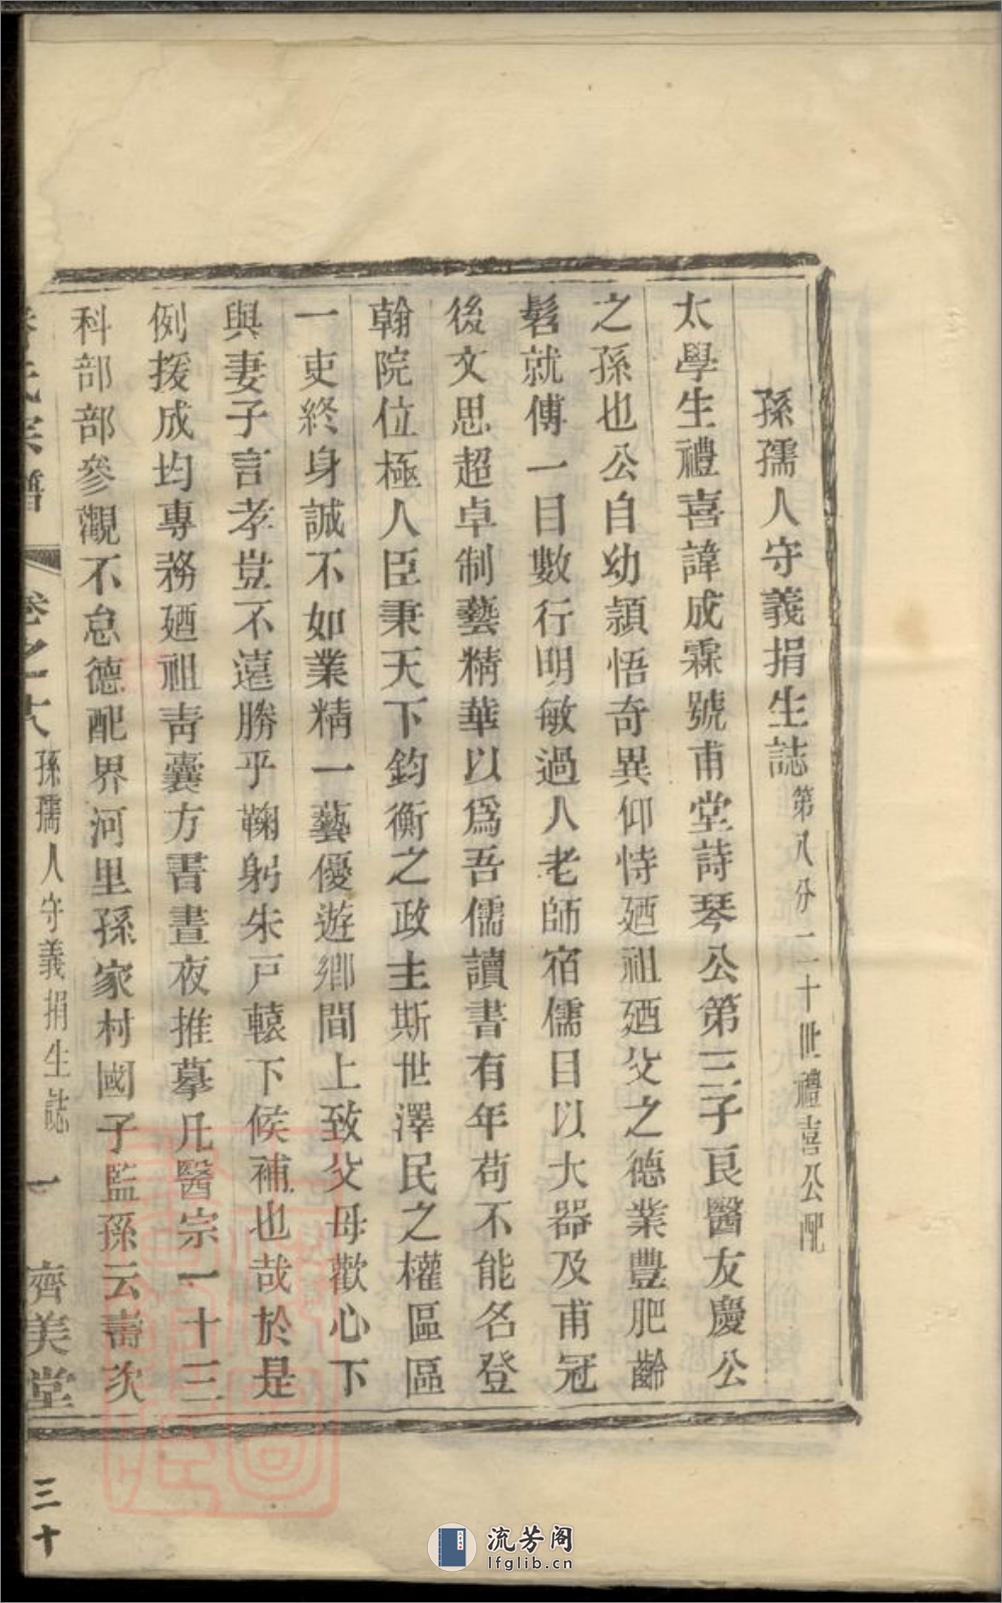 孫孺人守義捐生誌第八分二十世禮喜公配
太學生禮喜諱成霖號甫堂詩琴公第三子良醫友慶公
之孫也公自幼頴悟奇異仰恃廼祖廼父之德業豐肥齡
髫就傅一目數行明敏過人老師宿儒目以大器及甫冠
後文思超卓制藝精華以爲吾儒讀書有年苟不能名登
翰院位極人臣秉天下鈞衡之政主斯世澤民之權區區
一吏終身誠不如業精一藝優遊鄉間上致父母歡心下
與妻子言孝豈不遠勝乎鞠躬朱戸轅下候補也哉於是
例援成均專務廼祖靑囊方書晝夜推摹凡醫宗一十三
科部部參觀不怠德配界河里孫家村國子監孫云壽次
氏宗譜 卷之 孫孺人守義捐生誌 一 濟美堂
三十
流芳阁
lfglib.cn